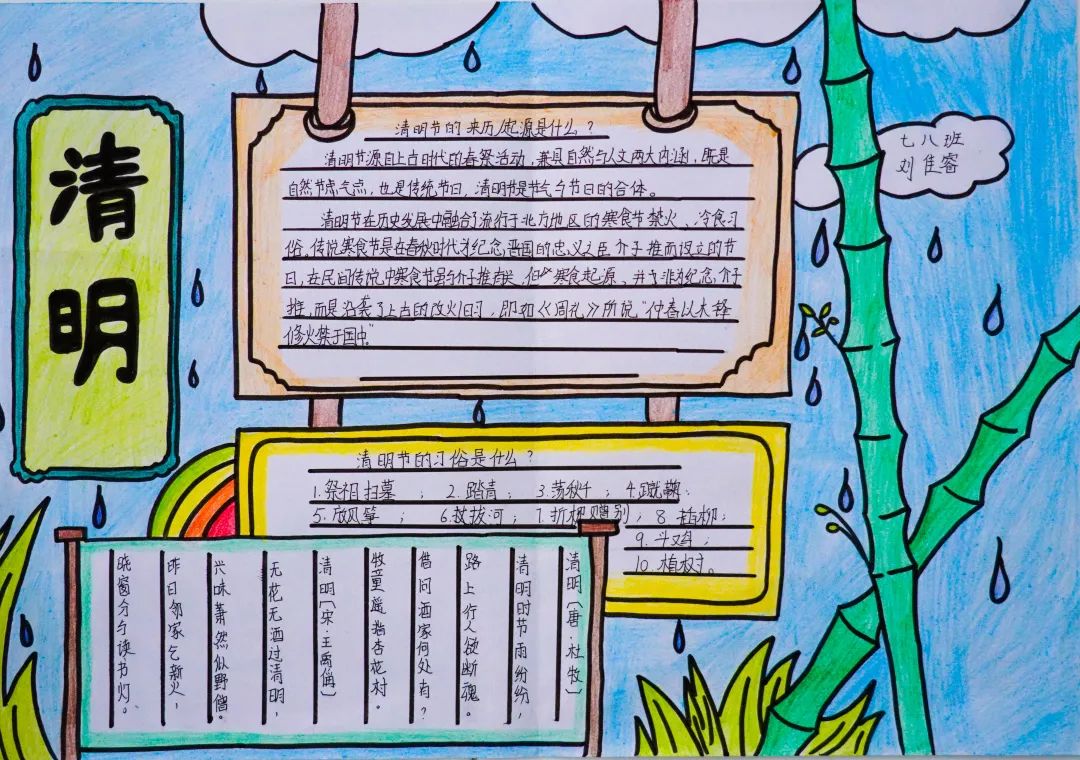 清明
七八班
刘佳睿
清明节的来历/起源是什么?
清明节源自上古时代的春祭活动,兼具自然与人文两大内涵,既是
自然节气点,也是传统节日,清明节是节气与节日的合体。
清明节在历史发展中融合了流行于北方地区的寒食节禁火、冷食习
俗。传说寒食节是在春秋时代为纪念晋国的忠义之臣介子推而设立的节
日,在民间传说中寒食节虽与介子推有关,但"寒食起源、并非为纪念介子
推,而是沿袭了上古的改火旧习,即如《周礼》所说"仲春以木铎
修火禁于国中"
清明节的习俗是什么?
1.祭祖扫墓; 2.踏青; 3.荡秋千; 4.蹴鞠;
5.放风筝; 6.拔河; 7.折柳赠别; 8.插柳;
9.斗鸡;
10.植树。
清明〔唐·杜牧〕
清明时节雨纷纷,
路上行人欲断魂。
借问酒家何处有?
牧童遥指杏花村。
清明〔宋·王禹偁〕
无花无酒过清明,
兴味萧然似野僧。
昨日邻家乞新火,
晓窗分与读书灯。